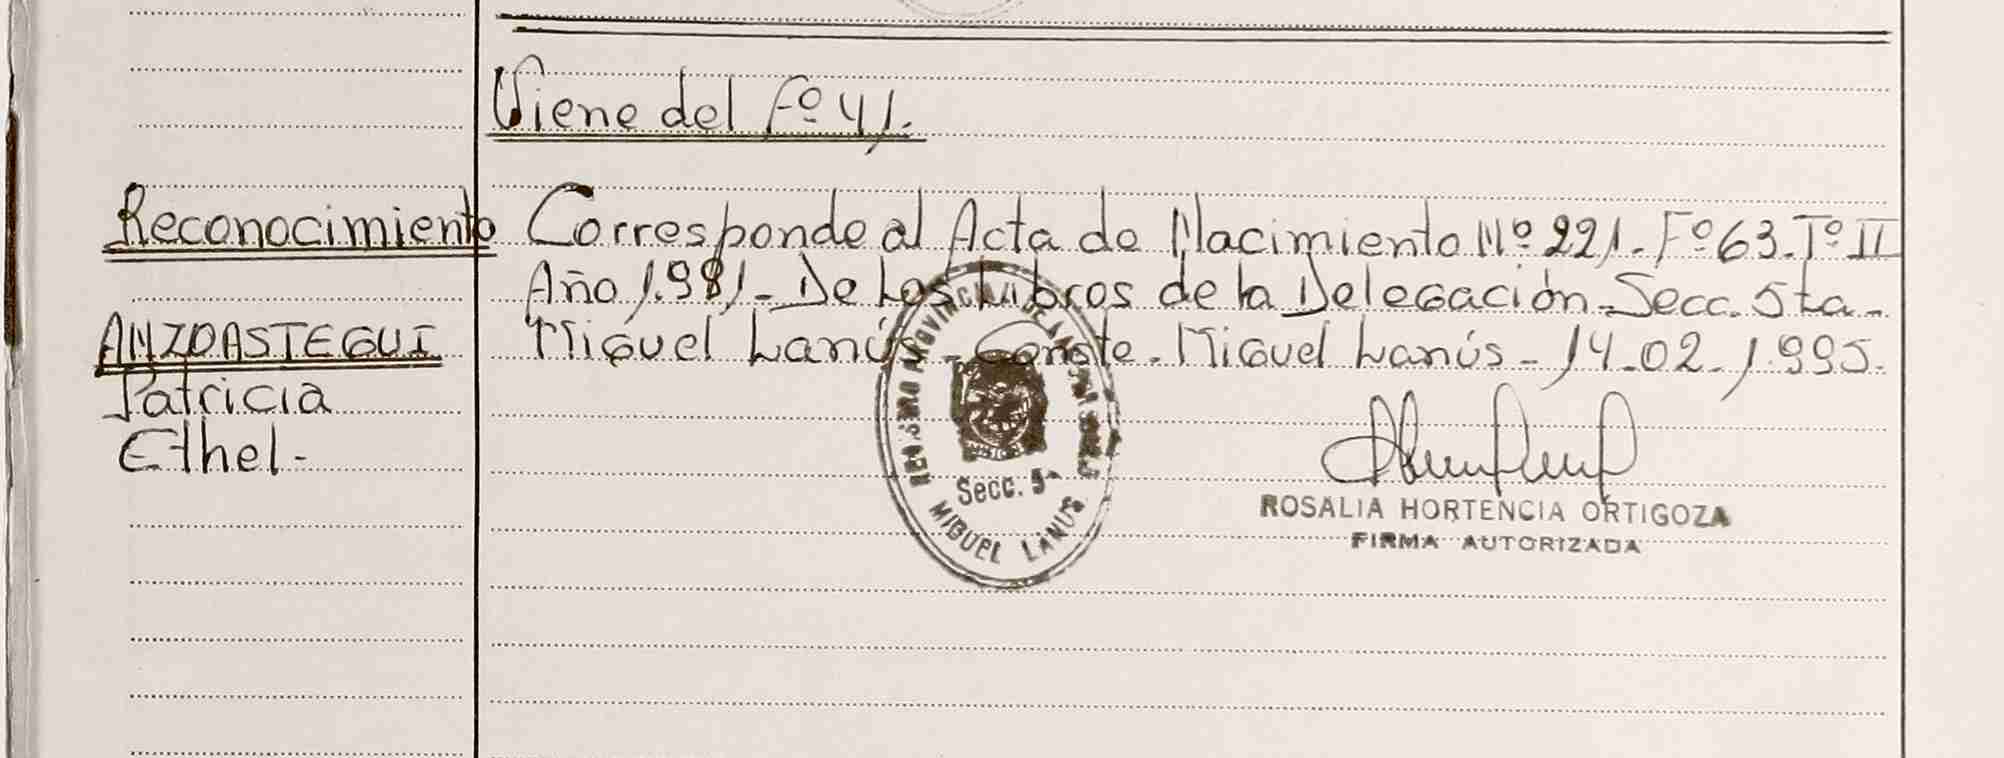 Viene del Fº 41.
Reconocimiento
ANZOASTEGUI
Patricia
Ethel.-
Corresponde al Acta de Nacimiento Nº 221. Fº 63. Tº II
Año 1.981_ De Los Libros de la Delegación_ Secc. 5ta_
Miguel Lanús_ Conste. Miguel Lanús_ 14.02.1.995.
Secc. 5ª
MIGUEL LANUS
ROSALIA HORTENCIA ORTIGOZA
FIRMA AUTORIZADA